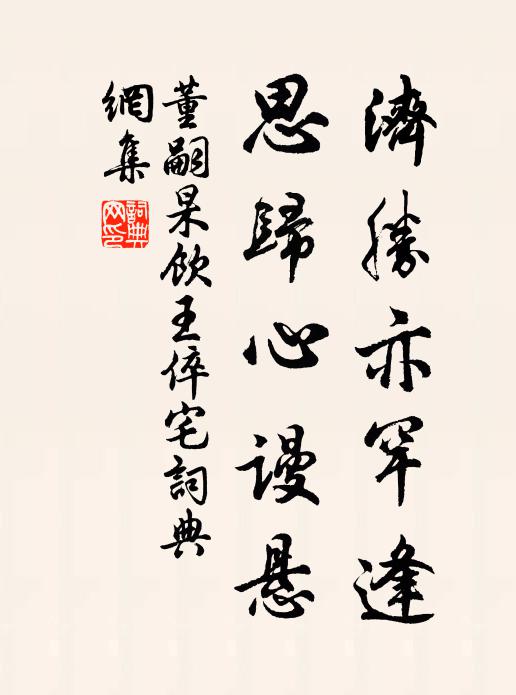 濟勝亦罕逢
思歸心謾悬
董嗣杲飲王倅宅詞典
網集
詞典網印